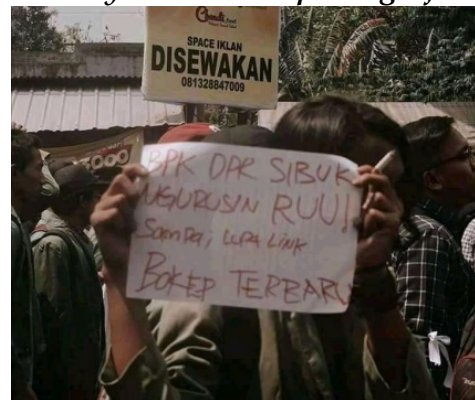 Chandi
SPACE IKLAN
DISEWAKAN
081328847009
BPK DPR SIBUK
NGURUSIN RUU!!
SAMPAi LUPA LINK
BOKEP TERBARU